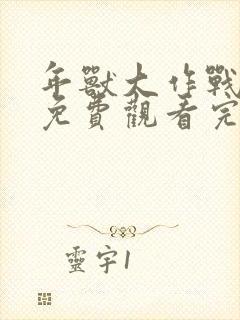 年獸大作戰
免費觀看完
靈宇1